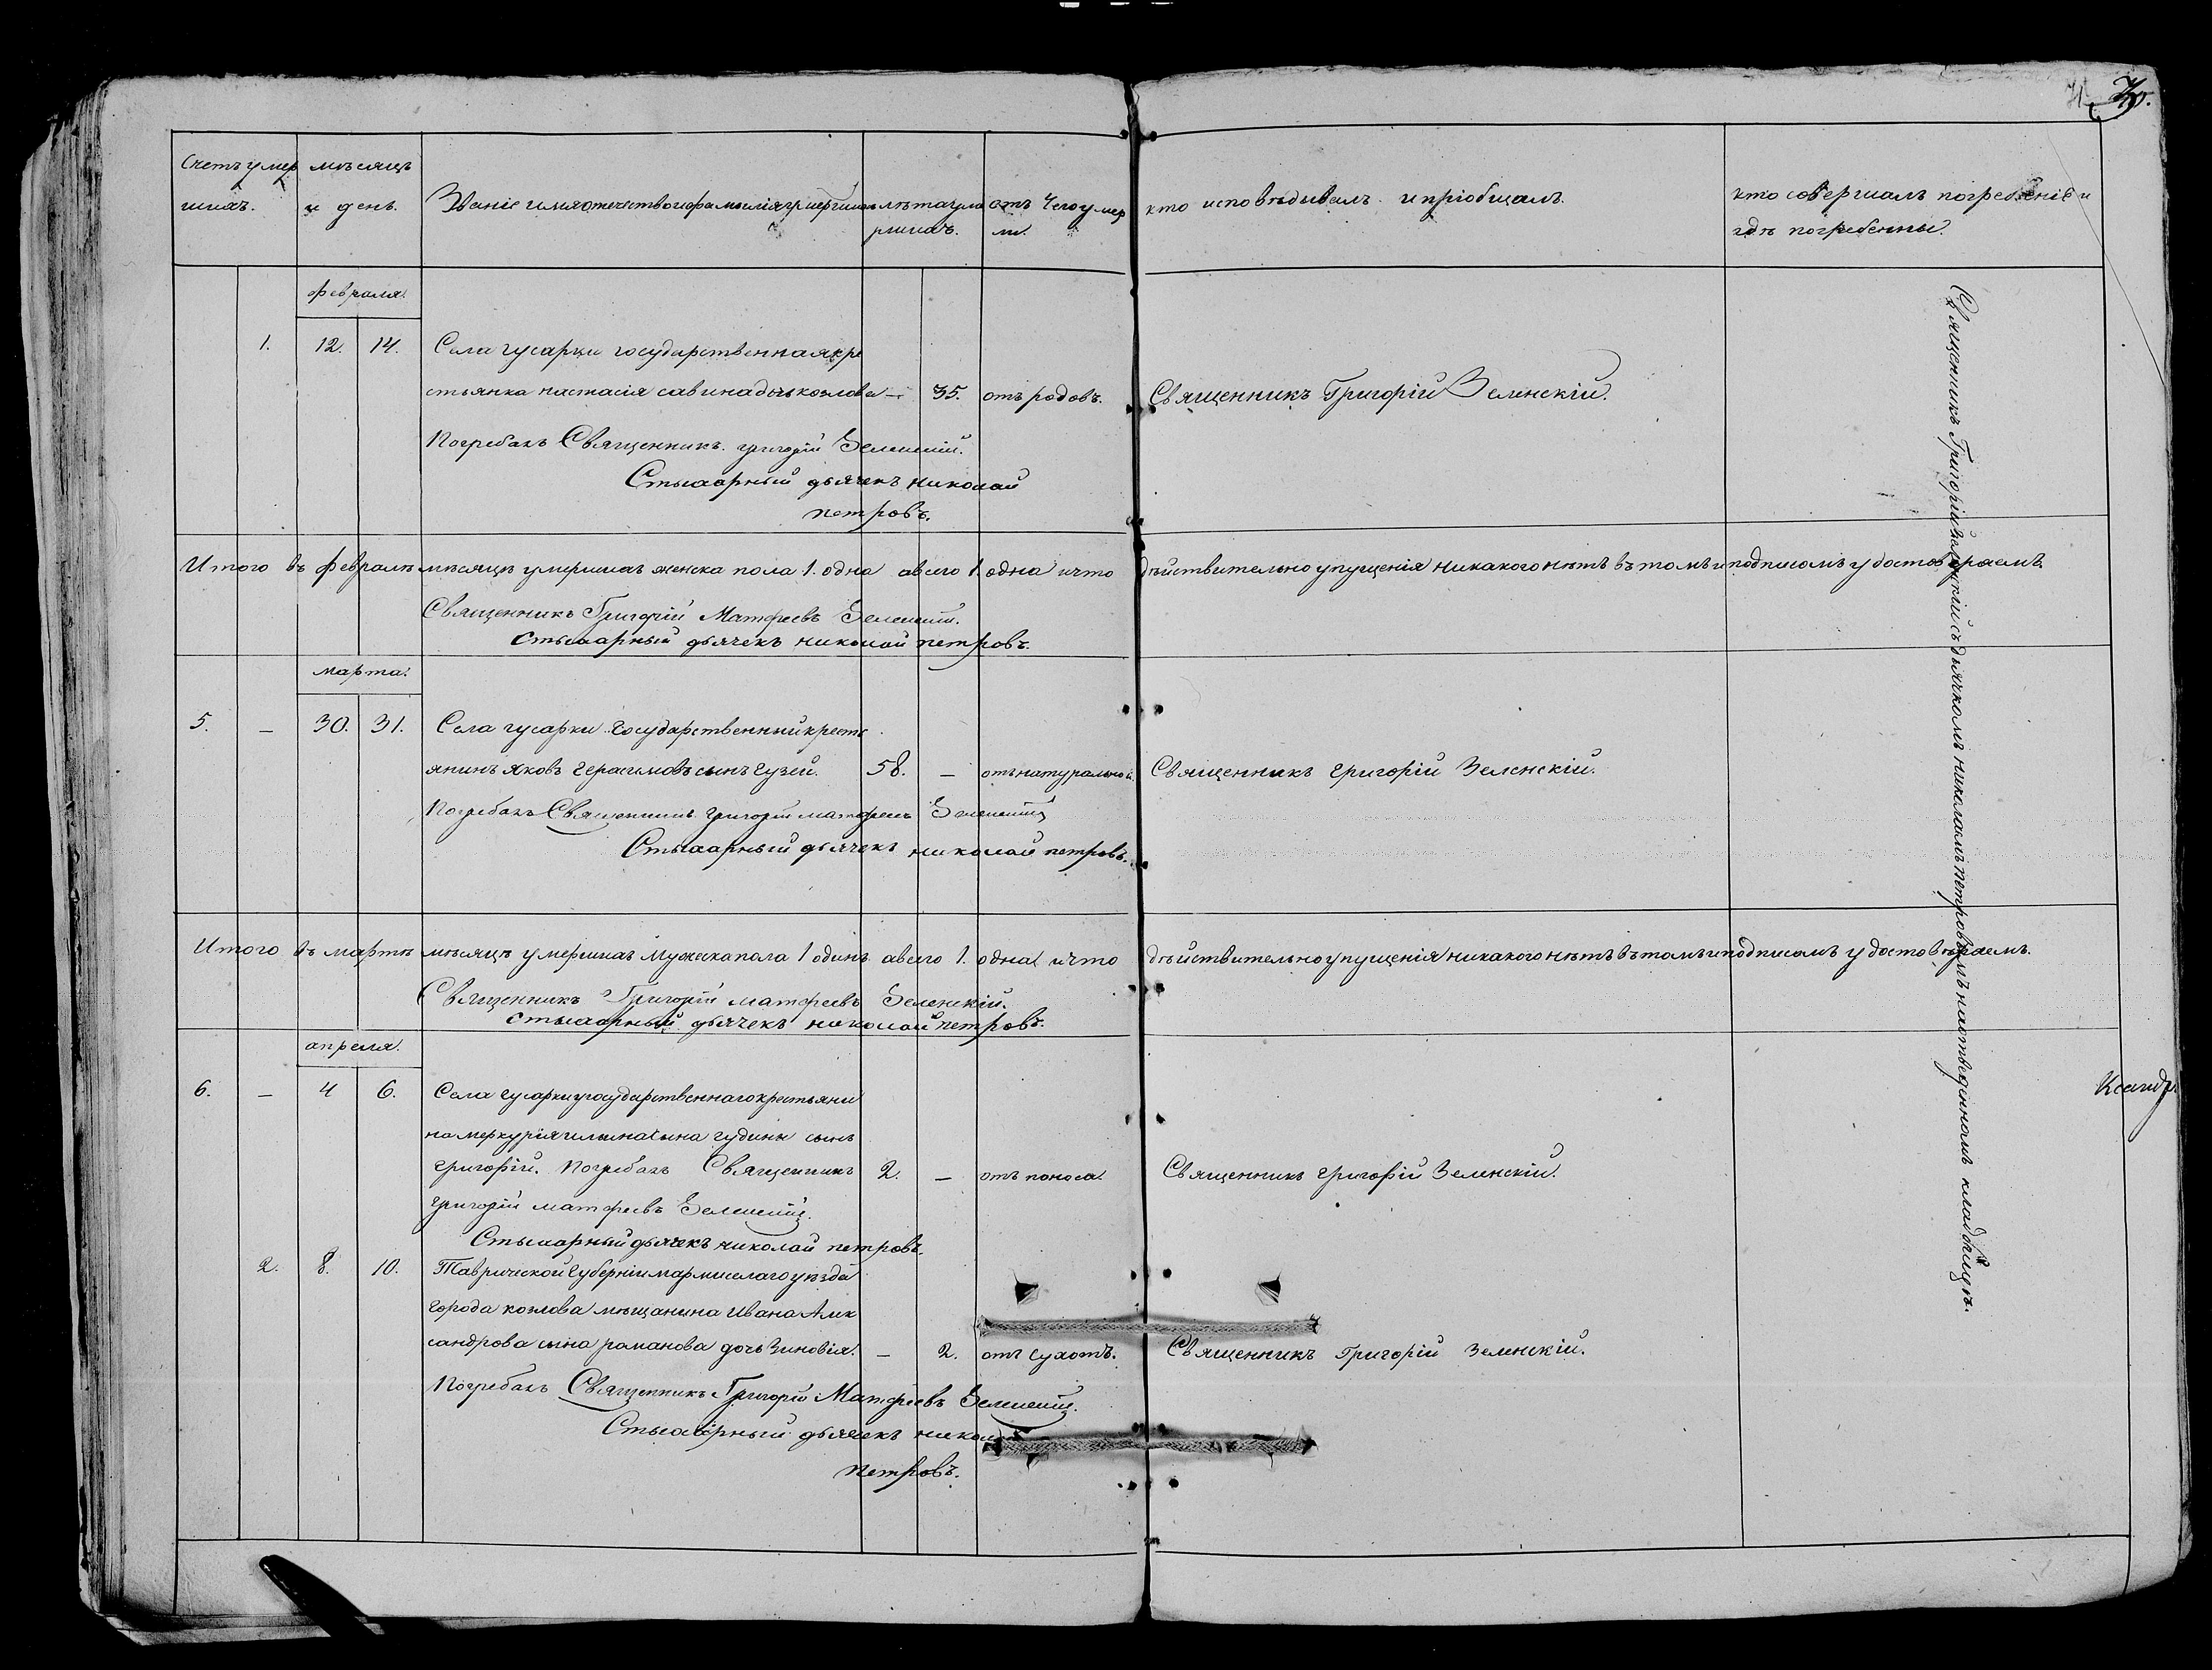 70.
71
Счетъ умер
шихъ.
мѣсяцъ
и день.
Званіе имя отечество и фамилія умершихъ
лѣта уме
ршихъ.
отъ чего умер
ли.
кто исповѣдывалъ и пріобщалъ.
кто совершалъ погребеніе и
гдѣ погребенны.
февраля.
1. 12. 14. Села гусарки государственная кре
стьянка настасія савина дочь козлова — 35. отъ родовъ. Священникъ Григорій Зеленскій.
Погребалъ Священникъ григорій Зеленскій.
Стыхарный дьячекъ николай
петровъ.
Итого въ февралѣ мѣсяцѣ умершихъ женска пола 1. одна а всего 1. одна и что дѣйствительно упущенія никакого нѣтъ въ томъ и подписомъ удостовѣряемъ.
Священникъ Григорій Матфеевъ Зеленскій.
стыхарный дьячекъ николай петровъ.
марта.
5. — 30. 31. Села гусарки государственный кресть
янинъ яковъ герасимовъ сынъ гузей. 58. — отъ натуральной. Священникъ григорій Зеленскій.
Погребалъ Священникъ григорій матфеевъ Зеленскій
Стыхарный дьячекъ николай петровъ.
Итого въ мартѣ мѣсяцѣ умершихъ мужеска пола 1 одинъ а всего 1. одна и что дѣйствительно упущенія никакого нѣтъ въ томъ и подписомъ удостовѣряемъ.
Священникъ Григорій матфеевъ Зеленскій.
стыхарный дьячекъ николай петровъ.
апреля.
6. — 4 6. Села гусарки у государственнаго крестьяни
на меркурія ильина сына гудини сынъ
григорій. Погребалъ Священникъ 2. — отъ поноса. Священникъ григорій Зеленскій.
григорій матфеевъ Зеленскій.
Стыхарный дьячекъ николай петровъ.
2. 8. 10. Таврической губерніи уѣзда
города козлова мѣщанина ивана Алек
сандрова сына романова дочь Зиновія. — 2. отъ сухотъ. Священникъ григорій Зеленскій.
Погребалъ Священникъ Григорій Матфеевъ Зеленскій.
Стыхарный дьячекъ николай
петровъ.
Священникъ Григорій Зеленскій съ дьячкомъ николаемъ петровымъ на отведенномъ кладбищѣ.